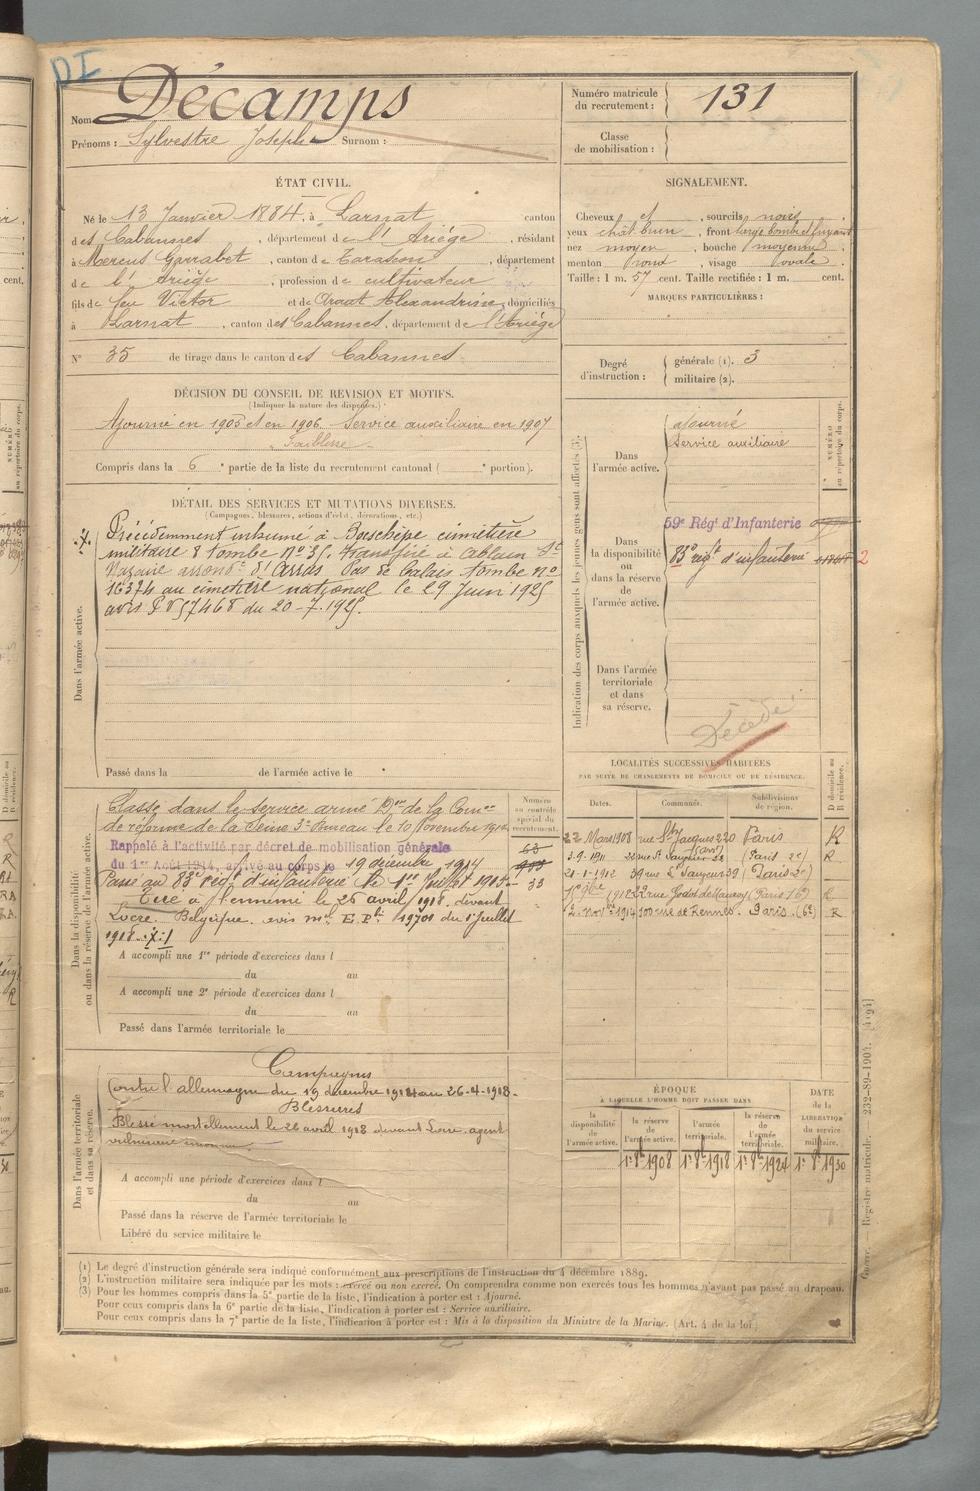 DI
Nom Décamps
Prénoms : Sylvestre Joseph Surnom :
Numéro matricule du recrutement : 131
Classe de mobilisation :
ÉTAT CIVIL.
Né le 13 Janvier 1884, à Larnat canton
des Cabannes, département de l'Ariége, résidant
à Mercus Garrabet, canton de Tarascon, département
de l'Ariège, profession de cultivateur
fils de feu Victor et de Alexandrine, domiciliés
à Larnat, canton des Cabannes, département de l'Ariége
N° 35 de tirage dans le canton des Cabannes
SIGNALEMENT.
Cheveux et, sourcils noirs,
yeux chât. brun, front large bombé et fuyant
nez moyen, bouche moyenne
menton rond, visage ovale.
Taille : 1 m. 57 cent. Taille rectifiée : 1 m. cent.
MARQUES PARTICULIÈRES :
Degré d'instruction :
générale (1). 3
militaire (2).
DÉCISION DU CONSEIL DE REVISION ET MOTIFS.
(Indiquer la nature des dispenses.)
Ajourné en 1905 et en 1906. Service auxiliaire en 1907
Faiblesse
Compris dans la 6e partie de la liste du recrutement cantonal ( e portion).
DÉTAIL DES SERVICES ET MUTATIONS DIVERSES.
(Campagnes, blessures, actions d'éclat, décorations, etc.)
Dans l'armée active.
Précédemment inhumé à Boeschèpe cimetière
militaire 8 tombe N° 35. transféré à Ablain St
Nazaire arrond. d'Arras Pas de Calais tombe n°
16374 au cimetière national le 29 Juin 1925
avis du 20-7-1925.
Passé dans la de l'armée active le
Indication des corps auxquels les jeunes gens sont affectés (3).
NUMÉRO au répertoire du corps.
Dans l'armée active.
ajourné
Service auxiliaire
Dans la disponibilité ou dans la réserve de l'armée active.
59e Régt d'Infanterie
83e régt d'infanterie 2
Dans l'armée territoriale et dans sa réserve.
Décédé
Dans la disponibilité ou dans la réserve de l'armée active.
Numéro au contrôle spécial du recrutement.
Classé dans le service armé Don de la Comon
de réforme de la Seine 3e Bureau le 10 novembre 1914
Rappelé à l'activité par décret de mobilisation générale
du 1er Août 1914, arrivé au corps le 19 décembre 1914
Passé au 83e régt d'infanterie le 1er Juillet 1915 33
Tué à l'ennemi le 26 avril 1918, devant
Locre. Belgique, avis mel 19701 du 1er Juillet
1918
A accompli une 1re période d'exercices dans l
du au
A accompli une 2e période d'exercices dans l
du au
Passé dans l'armée territoriale le
LOCALITÉS SUCCESSIVES HABITÉES
PAR SUITE DE CHANGEMENTS DE DOMICILE OU DE RÉSIDENCE.
D domicile ou R résidence.
Dates. Communes. Subdivisions de région.
22 Mars 1908 rue St Jacques 220 Paris R
3-9-1911 Paris 2e R
21-1-1912 39 rue 39 Paris 2e
22 rue Godot de Mauroy (Paris R
2 Novbre 1914 100 rue de Rennes. Paris. (6e) R
Dans l'armée territoriale et dans sa réserve.
Campagnes
Contre l'allemagne du 19 décembre 1914 au 26-4-1918.
Blessures
Blessé mortellement le 26 avril 1918 devant Locre. agent
A accompli une période d'exercices dans l
du au
Passé dans la réserve de l'armée territoriale le
Libéré du service militaire le
ÉPOQUE
À LAQUELLE L'HOMME DOIT PASSER DANS
la disponibilité de l'armée active.
la réserve de l'armée active.
l'armée territoriale.
la réserve de l'armée territoriale.
DATE de la LIBÉRATION du service militaire.
1r 8bre 1908 1r 8bre 1918 1r 8bre 1924 1r 8bre 1930
(1) Le degré d'instruction générale sera indiqué conformément aux prescriptions de l'instruction du 4 décembre 1889.
(2) L'instruction militaire sera indiquée par les mots : exercé ou non exercé. On comprendra comme non exercés tous les hommes n'ayant pas passé au drapeau.
(3) Pour les hommes compris dans la 5e partie de la liste, l'indication à porter est : Ajourné.
Pour ceux compris dans la 6e partie de la liste, l'indication à porter est : Service auxiliaire.
Pour ceux compris dans la 7e partie de la liste, l'indication à porter est : Mis à la disposition du Ministre de la Marine. (Art. 4 de la loi.)
Guerre. — Registre matricule. 232-89-1904. [4194]